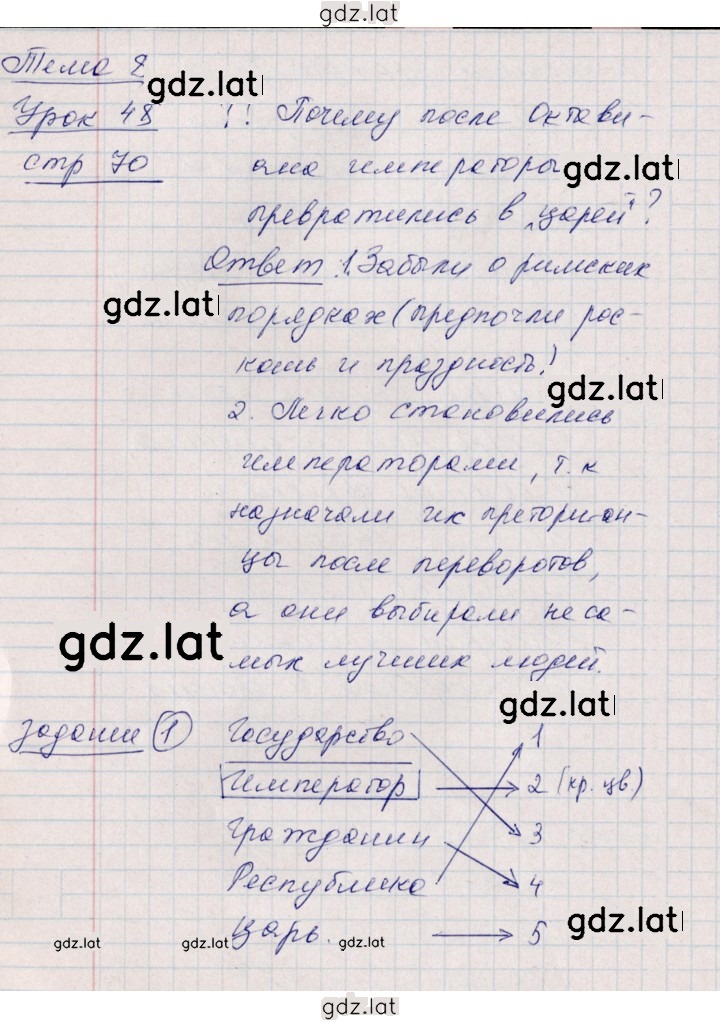 gdz.lat
Тема 2
gdz.lat
Урок 48
!! Почему после Октави-
стр 70
ана императоры
gdz.lat
превратились в "царей"?
Ответ: 1. Забыли о римских
gdz.lat
порядках (предпочли рос-
кошь и праздность!)
gdz.lat
2. Легко становились
императорами, т.к
назначали их преториан-
цы после переворотов,
а они выбирали не са-
gdz.lat
мых лучших людей.
gdz.lat
Задание 1 Государство 1
Император 2 (кр. цв.)
Гражданин 3
Республика 4
Царь. 5
gdz.lat
gdz.lat gdz.lat gdz.lat
gdz.lat